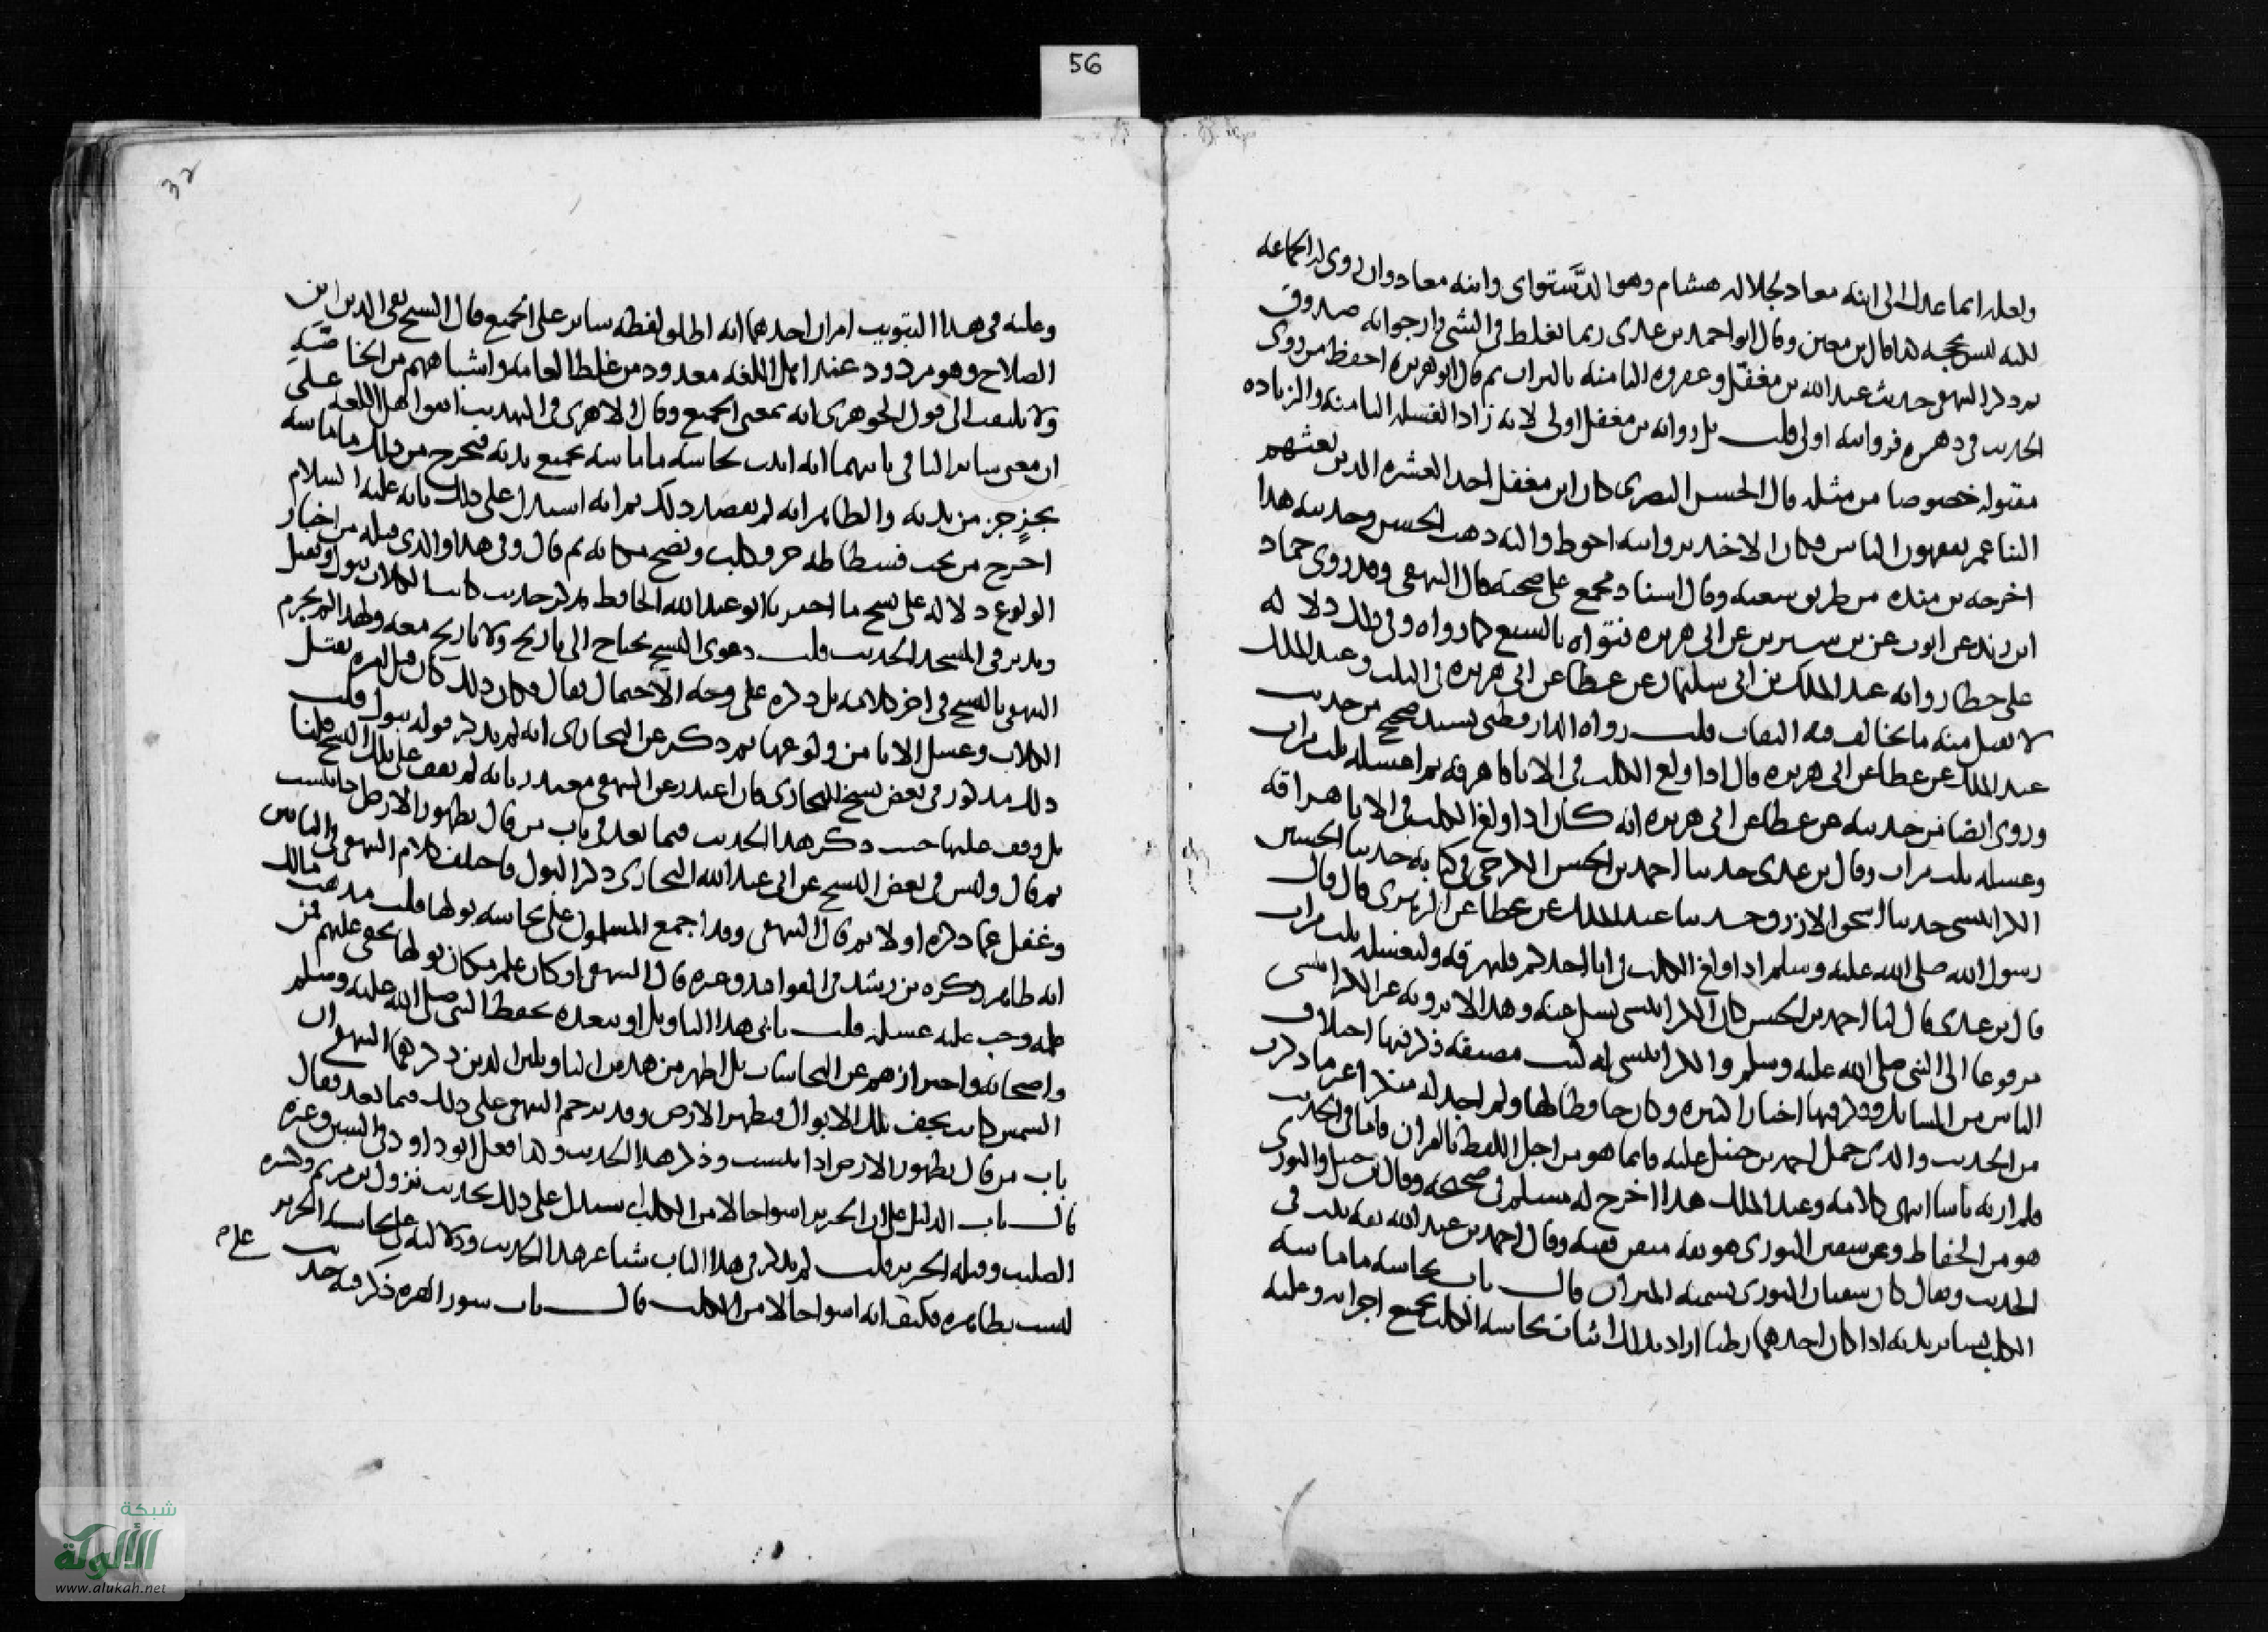 56
ولعله انما عدل الى ابنه معاد لجلاله هشام وهو الدَّستواى وابنه معاد وان روى له الجماعه
لكنه ليس بحجه كذا قال بن معين وقال ابو احمد بن عدى ربما يغلط فى الشى وارجو انه صدوق
ثم ذكر البيهقى حديث عبد الله بن مغفل وعفروه الثامنه بالتراب ثم قال ابو هريره احفظ من روى
الحديث فى دهره فروايته اولى قلت بل روايه بن مغفل اولى لانه زاد الغسله الثامنه والزياده
مقبوله خصوصا من مثله قال الحسن البصرى كان ابن مغفل احد العشره الذين بعثهم
الينا عمر يفقهون الناس فكان الاخذ بروايته احوط واليه ذهب الحسن وحديثه هذا
اخرجه بن منده من طريق شعبه وقال اسناد مجمع على صحته قال البيهقى وقد روى حماد
ابن زيد عن ايوب عن بن سيرين عن ابى هريره فتواه بالسبع كما رواه وفى ذلك دلاله
على خطا روايه عبد الملك بن ابى سليمان عن عطا عن ابى هريره فى الثلث وعبد الملك
لا يقبل منه ما يخالف فيه الثقات قلت رواه الدارقطنى بسند صحيح من حديث
عبد الملك عن عطا عن ابى هريره قال اذا ولغ الكلب فى الانا فاهرقه ثم اغسله ثلث مرات
وروى ايضا من حديثه عن عطا عن ابى هريره انه كان اذا ولغ الكلب فى الانا هراقه
وغسله ثلث مرات وقال بن عدى حدثنا احمد بن الحسن الكرخى فى كتابه حدثنا الحسين
الكرابيسى حدثنا اسحق الازرق حدثنا عبد الملك عن عطا عن الزهرى قال قال
رسول الله صلى الله عليه وسلم اذا ولغ الكلب فى انا احدكم فليهرقه وليغسله ثلث مرات
قال بن عدى قال لنا احمد بن الحسن كان الكرابيسى يسل عنه وهذا لا يرويه غير الكرابيسى
مرفوعا الى النبى صلى الله عليه وسلم والكرابيسى له كتب مصنفه ذكر فيها اختلاف
الناس من المسائل وذكر فيها اخبارا كثيره وكان حافظا لها ولم اجد له منكرا غير ما ذكرت
من الحديث والذى حمل احمد بن حنبل عليه فانما هو من اجل اللفظ بالقران فاما فى الحديث
فلم ار به باسا انتهى كلامه وعبد الملك هذا اخرج له مسلم فى صحيحه وقال بن حنبل والثورى
هو من الحفاظ وعن سفين الثورى هو ثقه متقن فقيه وقال احمد بن عبد الله ثقه ثبت فى
الحديث ويقال كان سفيان الثورى يسميه الميزان قال باب نجاسه ما ماسه
الكلب بسائر بدنه اذا كان احدهما رطبا اراد بذلك اثبات نجاسه الكلب بجميع اجزائه وعليه
32
وعليه فى هذا التبويب امران احدهما انه اطلق لفظه سائر على الجميع قال الشيخ تقى الدين ابن
الصلاح وهو مردود عند اهل اللغه معدود من غلط العامه واشباههم من الخاصّه
ولا يلتفت الى قول الجوهرى انه بمعنى الجميع وقال الازهرى فى التهذيب اتفق اهل اللغه على
ان معنى سائر الباقى ثانيهما انه اثبت نجاسه ما ماسه بجميع بدنه فيخرج من ذلك ما ماسه
بجزء جز من بدنه والظاهر انه لم يقصد ذلك ثم انه استدل على ذلك بانه عليه السلام
اخرج من تحت فسطاطه جرو كلب ونضح مكانه ثم قال وفى هذا والذى قبله من اخبار
الولوغ دلاله على نسخ ما اخبرنا ابو عبد الله الحافظ فذكر حديث كانت الكلاب تبول وتقبل
وتدبر فى المسجد الحديث قلت دعوى النسخ يحتاج الى تاريخ ولا تاريخ معه ولهذا لم يجزم
البيهقى بالنسخ فى اخر كلامه بل ذكره على وجه الاحتمال فقال وكان ذلك كان قبل امره بقتل
الكلاب وغسل الانا من ولوغها ثم ذكر عن البخارى انه لم يذكر قوله تبول قلت
ذلك مذكور فى بعض نسخ البخارى فان اعتذر عن البيهقى معتذر بانه لم يقف على تلك النسخ قلنا
بل وقف عليها حيث ذكر هذا الحديث فيما بعد فى باب من قال بطهور الارض اذا يبست
ثم قال وليس فى بعض النسخ عن ابى عبد الله البخارى ذكر البول فاختلف كلام البيهقى فى الباس
وغفل عما ذكره اولا ثم قال البيهقى وقد اجمع المسلمون على نجاسه بولها قلت مذهب مالك
انه طاهر ذكره بن رشد فى القواعد وغيره قال البيهقى او كان علم مكان بولها يخفى عليهم فمن
علمه وجب عليه غسله قلت يابى هذا التاويل او يبعده تحفظ النبى صلى الله عليه وسلم
واصحابه واحترازهم عن النجاسات بل اظهر من هذين التاويلين الذين ذكرهما البيهقى ان
الشمس كانت تجفف تلك الابوال فتطهر الارض وقد ترجم البيهقى على ذلك فيما بعد فقال
باب من قال بطهور الارض اذا يبست وذكر هذا الحديث وكذا فعل ابو داود فى السنن وغيره
قال باب الدليل على ان الخنزير اسوا حالا من الكلب استدل على ذلك بحديث نزول بن مريم وكسره
الصليب وقتله الخنزير قلت لم يذكر فى هذا الباب شيا غير هذا الحديث ودلالته على نجاسه الخنزير
ليست بظاهره فكيف انه اسوا حالا من الكلب قال باب سور الهره ذكر فيه حديث
شبكة
الألوكة
www.alukah.net